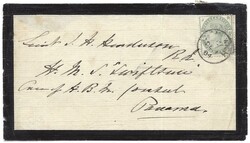 Lieut J. H. Henderson
R.N.
H. M. S "Swiftsure"
Care of H. B. M. Consul
Panama